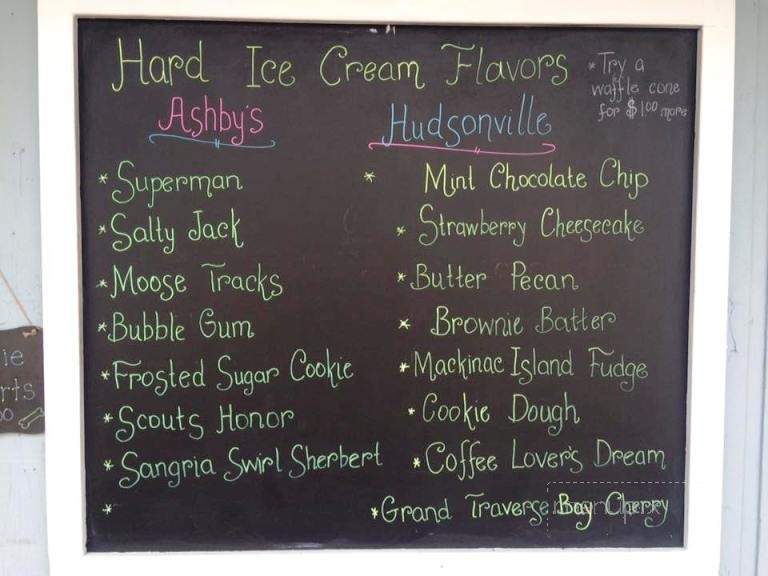 Hard Ice Cream Flavors
*Try a
waffle cone
for $1.00 more
Ashby's
Hudsonville
*Superman
*Salty Jack
*Moose Tracks
*Bubble Gum
*Frosted Sugar Cookie
*Scouts Honor
*Sangria Swirl Sherbert
*
* Mint Chocolate Chip
* Strawberry Cheesecake
*Butter Pecan
* Brownie Batter
*Mackinac Island Fudge
*Cookie Dough
*Coffee Lover's Dream
*Grand Traverse Bay Cherry
ie
rts